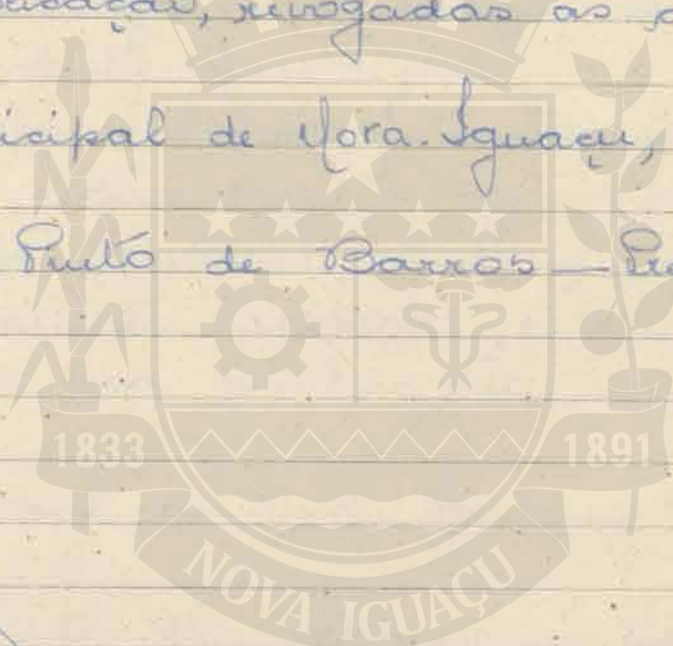 revogadas as
icipal de Nova-Iguaçu,
Pinto de Barros —
1833 1891
NOVA IGUAÇU